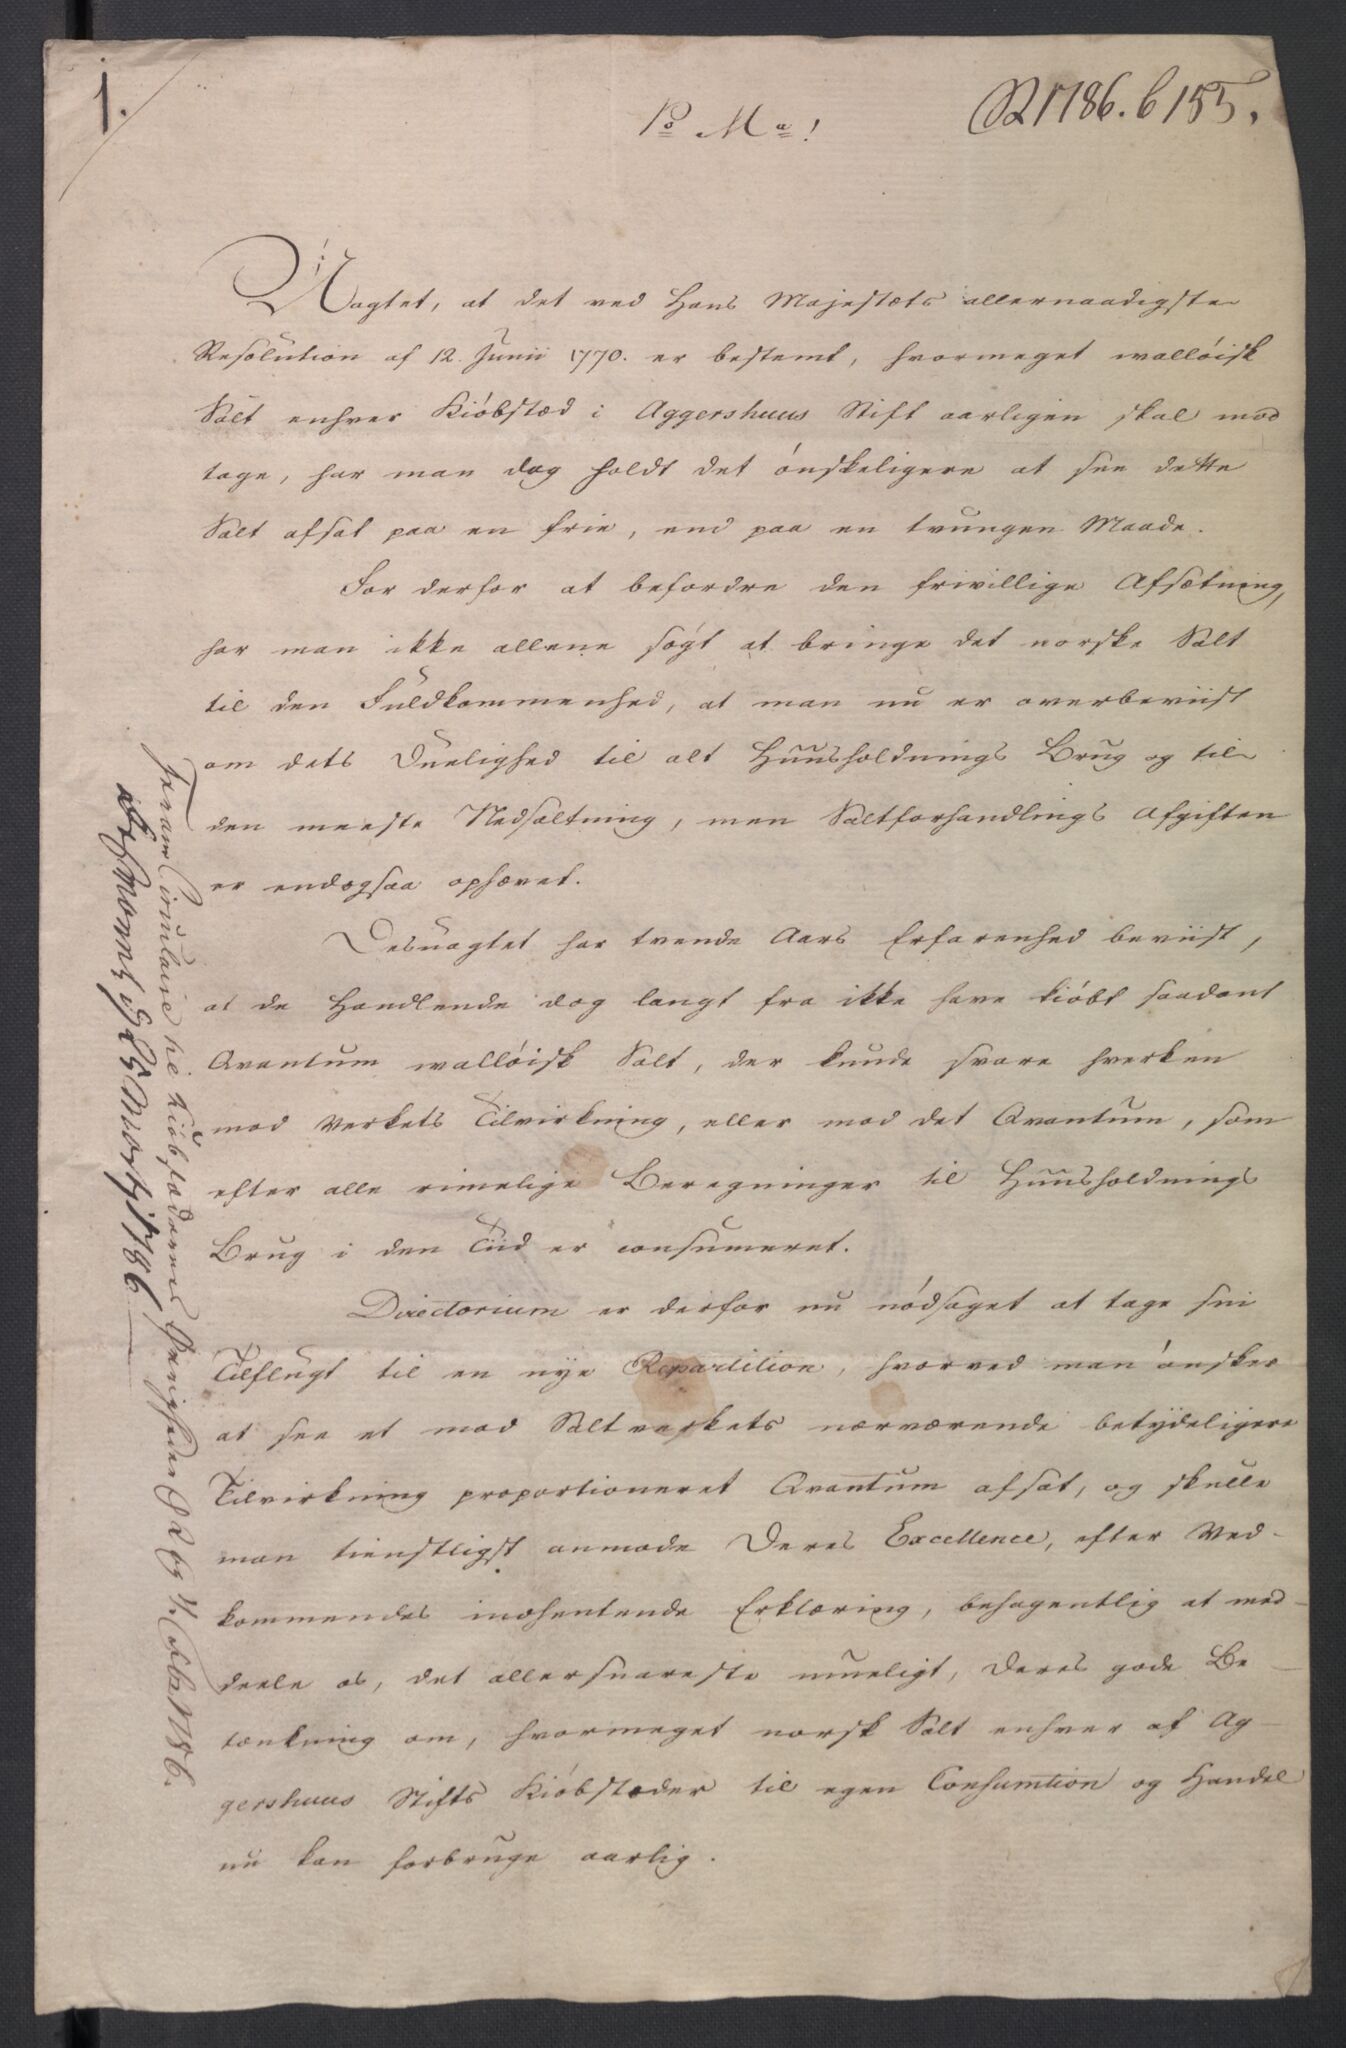 1.
P&o M&a!
R 1786. b 155.
Uagtet, at det ved Hans Majestæts allernaadigste
Resolution af 12. Junii 1770. er bestemt, hvormeget wallöisk
Salt enhver Kiöbstæd i Aggershuus Stift aarligen skal mod
tage, har man dog holdt det önskeligere at see dette
Salt afsat paa en frie, end paa en tvungen Maade.
For derfor at befordre den frivillige Afsætning,
har man ikke allene sögt at bringe det norske Salt
til den Fuldkommenhed, at man nu er overbeviist
om dets Duelighed til alt Huusholdnings Brug og til
den meeste Nedsaltning, men Saltforhandlings Afgiften
er endogsaa ophævet.
Desuagtet har tvende Aars Erfarenhed beviist,
at de Handlende dog langt fra ikke have kiöbt saadant
Qvantum wallöisk Salt, der kunde svare hverken
mod Verkets Tilvirkning, eller mod det Qvantum, som
efter alle rimelige Beregninger til Huusholdnings
Brug i den Tiid er consumeret.
Directorium er derfor nu nödsaget at tage sin
Tilflugt til en nye Repartition, hvorved man önsker
at see et mod Saltverkets nærværende betydeligere
Tilvirkning proportioneret Qvantum afsat, og skulle
man tienstligst anmode Deres Excellence, efter Ved-
kommendes indhentende Erklæring, behagentlig at med-
deele os, det allersnareste mueligt, Deres gode Be-
tænkning om, hvormeget norsk Salt enhver af Ag-
gershuus Stifts Kiöbstæder til egen Consumtion og Handel
nu kan forbruge aarlig.
Circulaire til Kiöbstædernes Övrigheder
Martz 1786